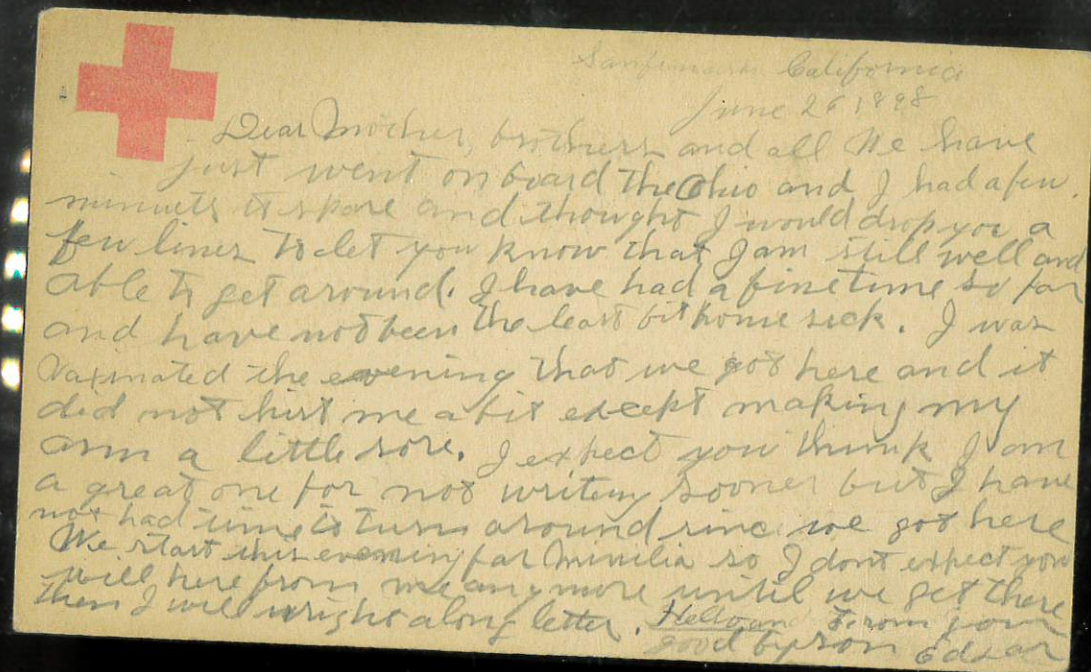 Sanfrancisco California
June 26 1898
Dear Mother, brothers and all We have
just went on board the Ohio and I had a few
minuets to spare and thought I would drop you a
few lines to let you know that I am still well and
able to get around. I have had a fine time so far
and have not been the least bit home sick. I was
vaxinated the evening that we got here and it
did not hirt me a bit except making my
arm a little sore. I expect you think I am
a great one for not writeing sooner but I have
not had time to turn around since we got here
We start this evening for Minilia so I dont expect you
will here from me any more until we get there
then I will wright along letter. Hello and From your
good by son Edgar